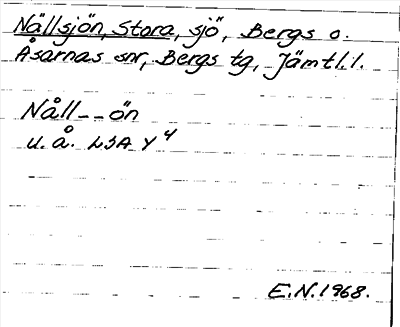 Nällsjön, Stora, sjö, Bergs o.
Åsarnas snr, Bergs tg, Jämtl.l.
Nåll--ön
u.å. LSA Y4
E.N.1968.